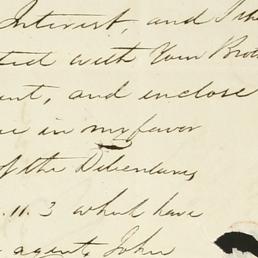 Interest, and I
ted with Your Bro
ent, and enclose
e in my favor
of the Debentures
.11.3 what have
agent, John